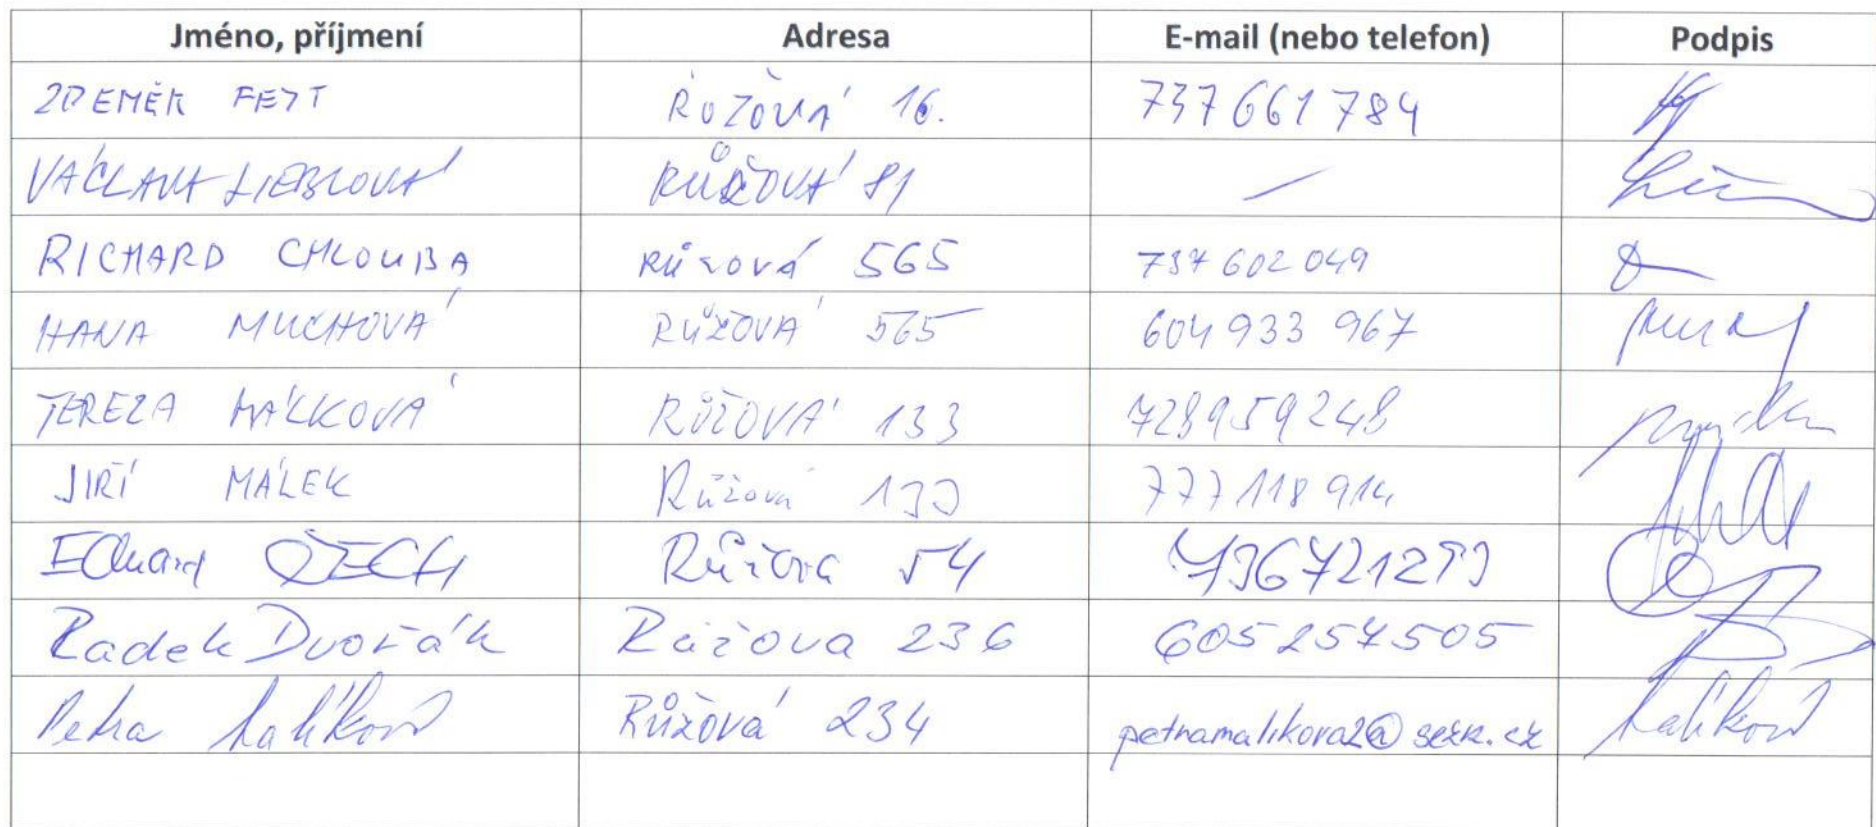 Jméno, příjmení Adresa E-mail (nebo telefon) Podpis
ZDENĚK FEJT RŮŽOVÁ 16. 737 661 784
VÁCLAVA LIEBLOVÁ RŮŽOVÁ 81 —
RICHARD CHLOUBA Růžová 565 737 602 049
HANA MUCHOVÁ RŮŽOVÁ 565 604 933 967
TEREZA MÁLKOVÁ RŮŽOVÁ 133 728959248
JIŘÍ MÁLEK Růžová 133 777 118 914
Eduard ČZECH Růžová 54 736721293
Radek Dvořák Růžova 236 605257505
Petra Malíková Růžová 234 petramalikova2@sezn.cz Malíková